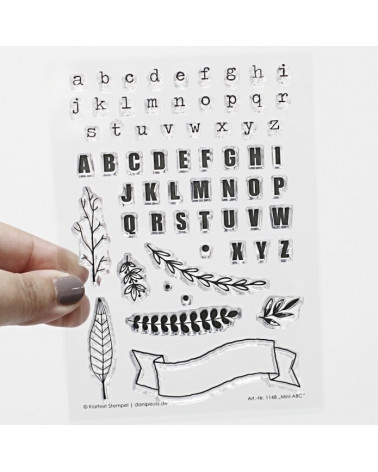 a b c d e f g h i
j k l m n o p q r
s t u v w x y z
A B C D E F G H I
J K L M N O P
Q R S T U V W
X Y Z
© Klartext Stempel | danipeuss.de
Art.-Nr. 1148 „Mini-ABC"